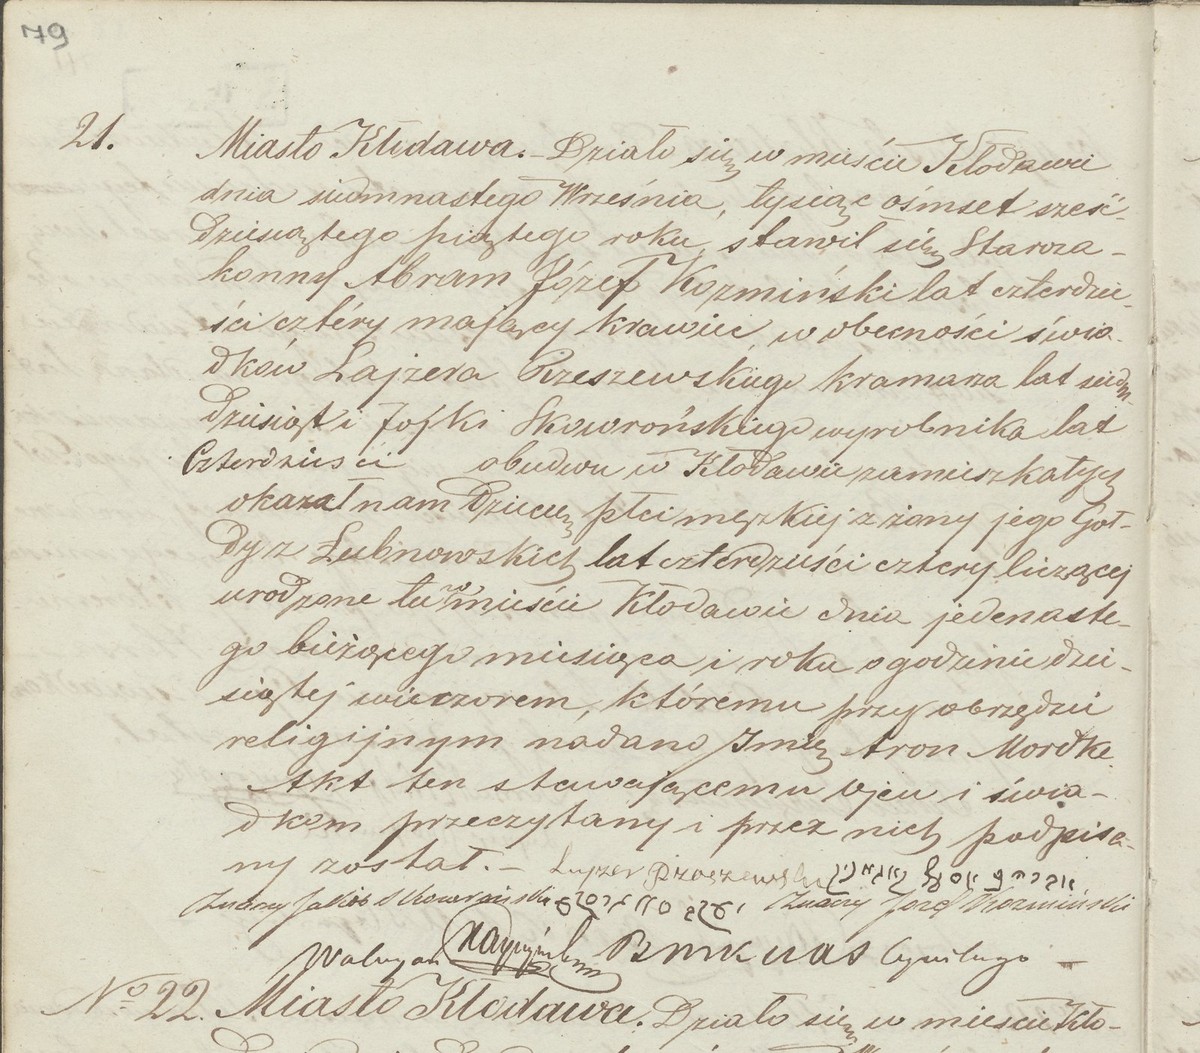 79
21. Miasto Kłodawa. – Działo się w mieście Kłodawie
dnia siedmnastego Września, tysiąc ośmset sześć-
dziesiątego piątego roku, stawił się Staroza-
konny Abram Józef Kozmiński lat czterdzie-
ści cztéry mający krawiec, w obecności świa-
dków Lajzera Przeszewskiego kramarza lat siedm-
dziesiąt i Jośki Skowrońskiego wyrobnika lat
Czterdzieści obudwu w Kłodawie zamieszkałych
okazał nam Dziecię płci męzkiej z żony jego Goł-
dy z Łubnowskich lat czterdzieści cztery liczącej
urodzone tu w mieście Kłodawie dnia jedenaste-
go bieżącego miesiąca i roku o godzinie dzie-
siątej wieczorem, któremu przy obrzędzie
religijnym nadano Imię Aron Mordke
Akt ten stawającemu ojcu i świa-
dkom przeczytany i przez nich podpisa-
ny został. – Lajzer Przeszewski
Znaczy Jakób Skowroński Znaczy Józef Kozmiński
Cywilnego –
No 22. Miasto Kłodawa. Działo się w mieście Kło-